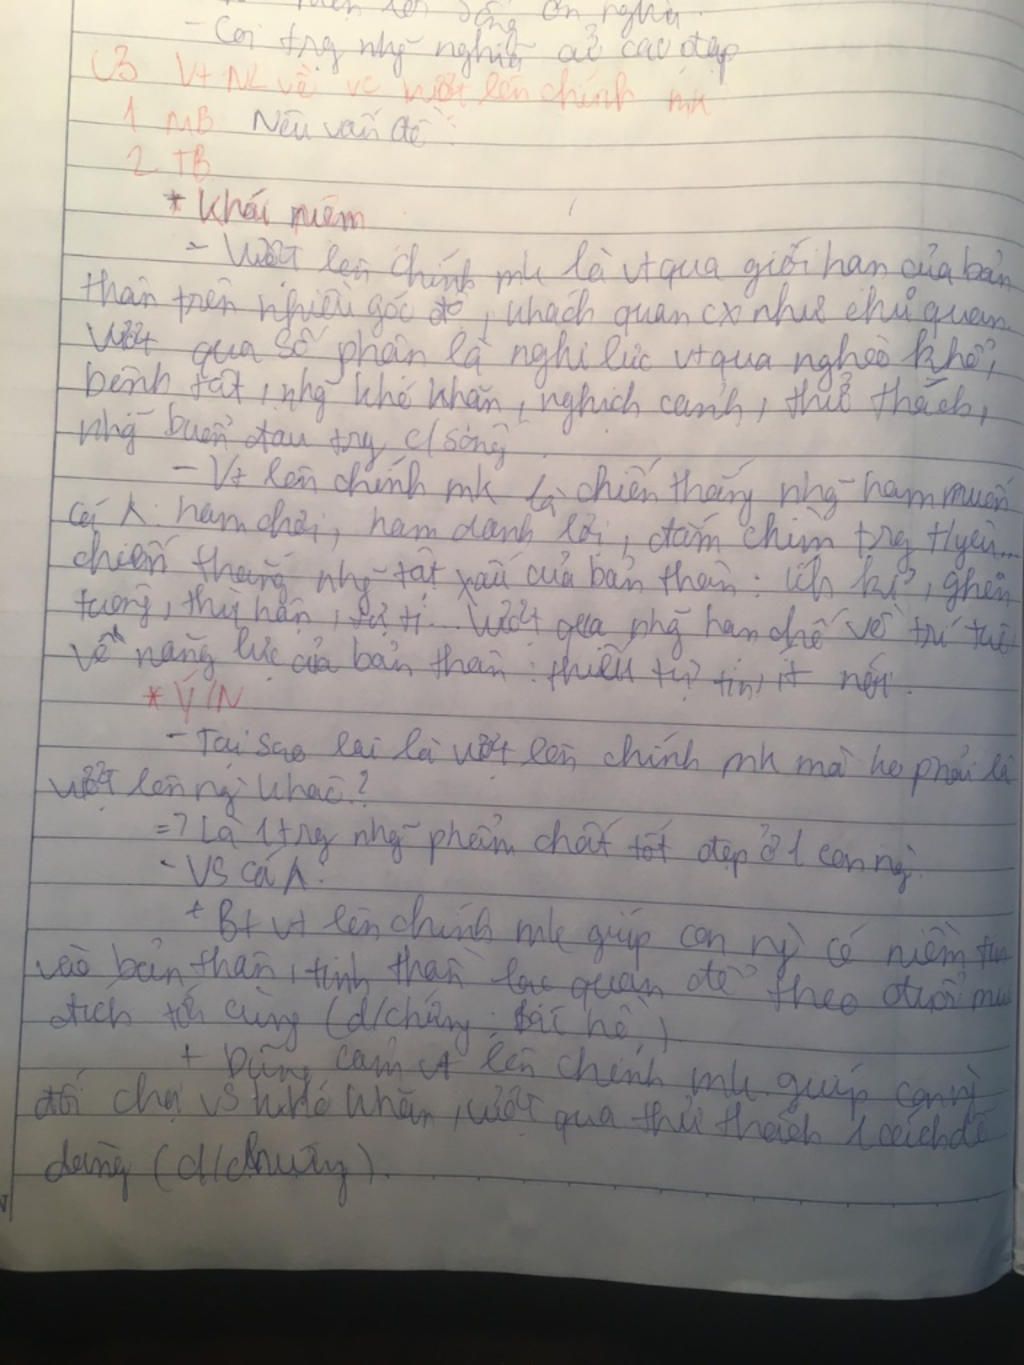 ơn nghĩa.
- Coi trg nhg~ nghĩa cử cao đẹp
C3 Vt NL về vc vượt lên chính mk
1 MB Nêu vấn đề
2 TB
* Khái niệm
- Vượt lên chính mk là vt qua giới hạn của bản
thân trên nhiều góc độ, khách quan cx như chủ quan.
Vượt qua số phận là nghị lực vt qua nghèo khổ,
bệnh tật, nhg~ khó khăn, nghịch cảnh, thử thách,
nhg~ buồn đau trg c/sống
- Vt lên chính mk là chiến thắng nhg~ ham muốn
cá : ham chơi, ham danh lợi, đắm chìm trg t/yêu...
chiến thắng nhg~ tật xấu của bản thân : ích kỉ, ghen
tuông, thù hận, tự ti... Vượt qua nhg~ hạn chế về trí tuệ
về năng lực của bản thân : thiếu tự tin, ít nói.
* Ý/N
- Tại sao lại là vượt lên chính mk mà ko phải là
vượt lên ng` khác ?
=> Là 1 trg nhg~ phẩm chất tốt đẹp ở 1 con ng`.
- VS cá
+ Bt vt lên chính mk giúp con ng` có niềm tin
vào bản thân, tinh thần lạc quan để theo đuổi mục
đích tới cùng (d/chứng : )
+ Dũng cảm vt lên chính mk giúp con ng`
đối chọi vs khó khăn, vượt qua thử thách 1 cách dễ
dàng (d/chứng).